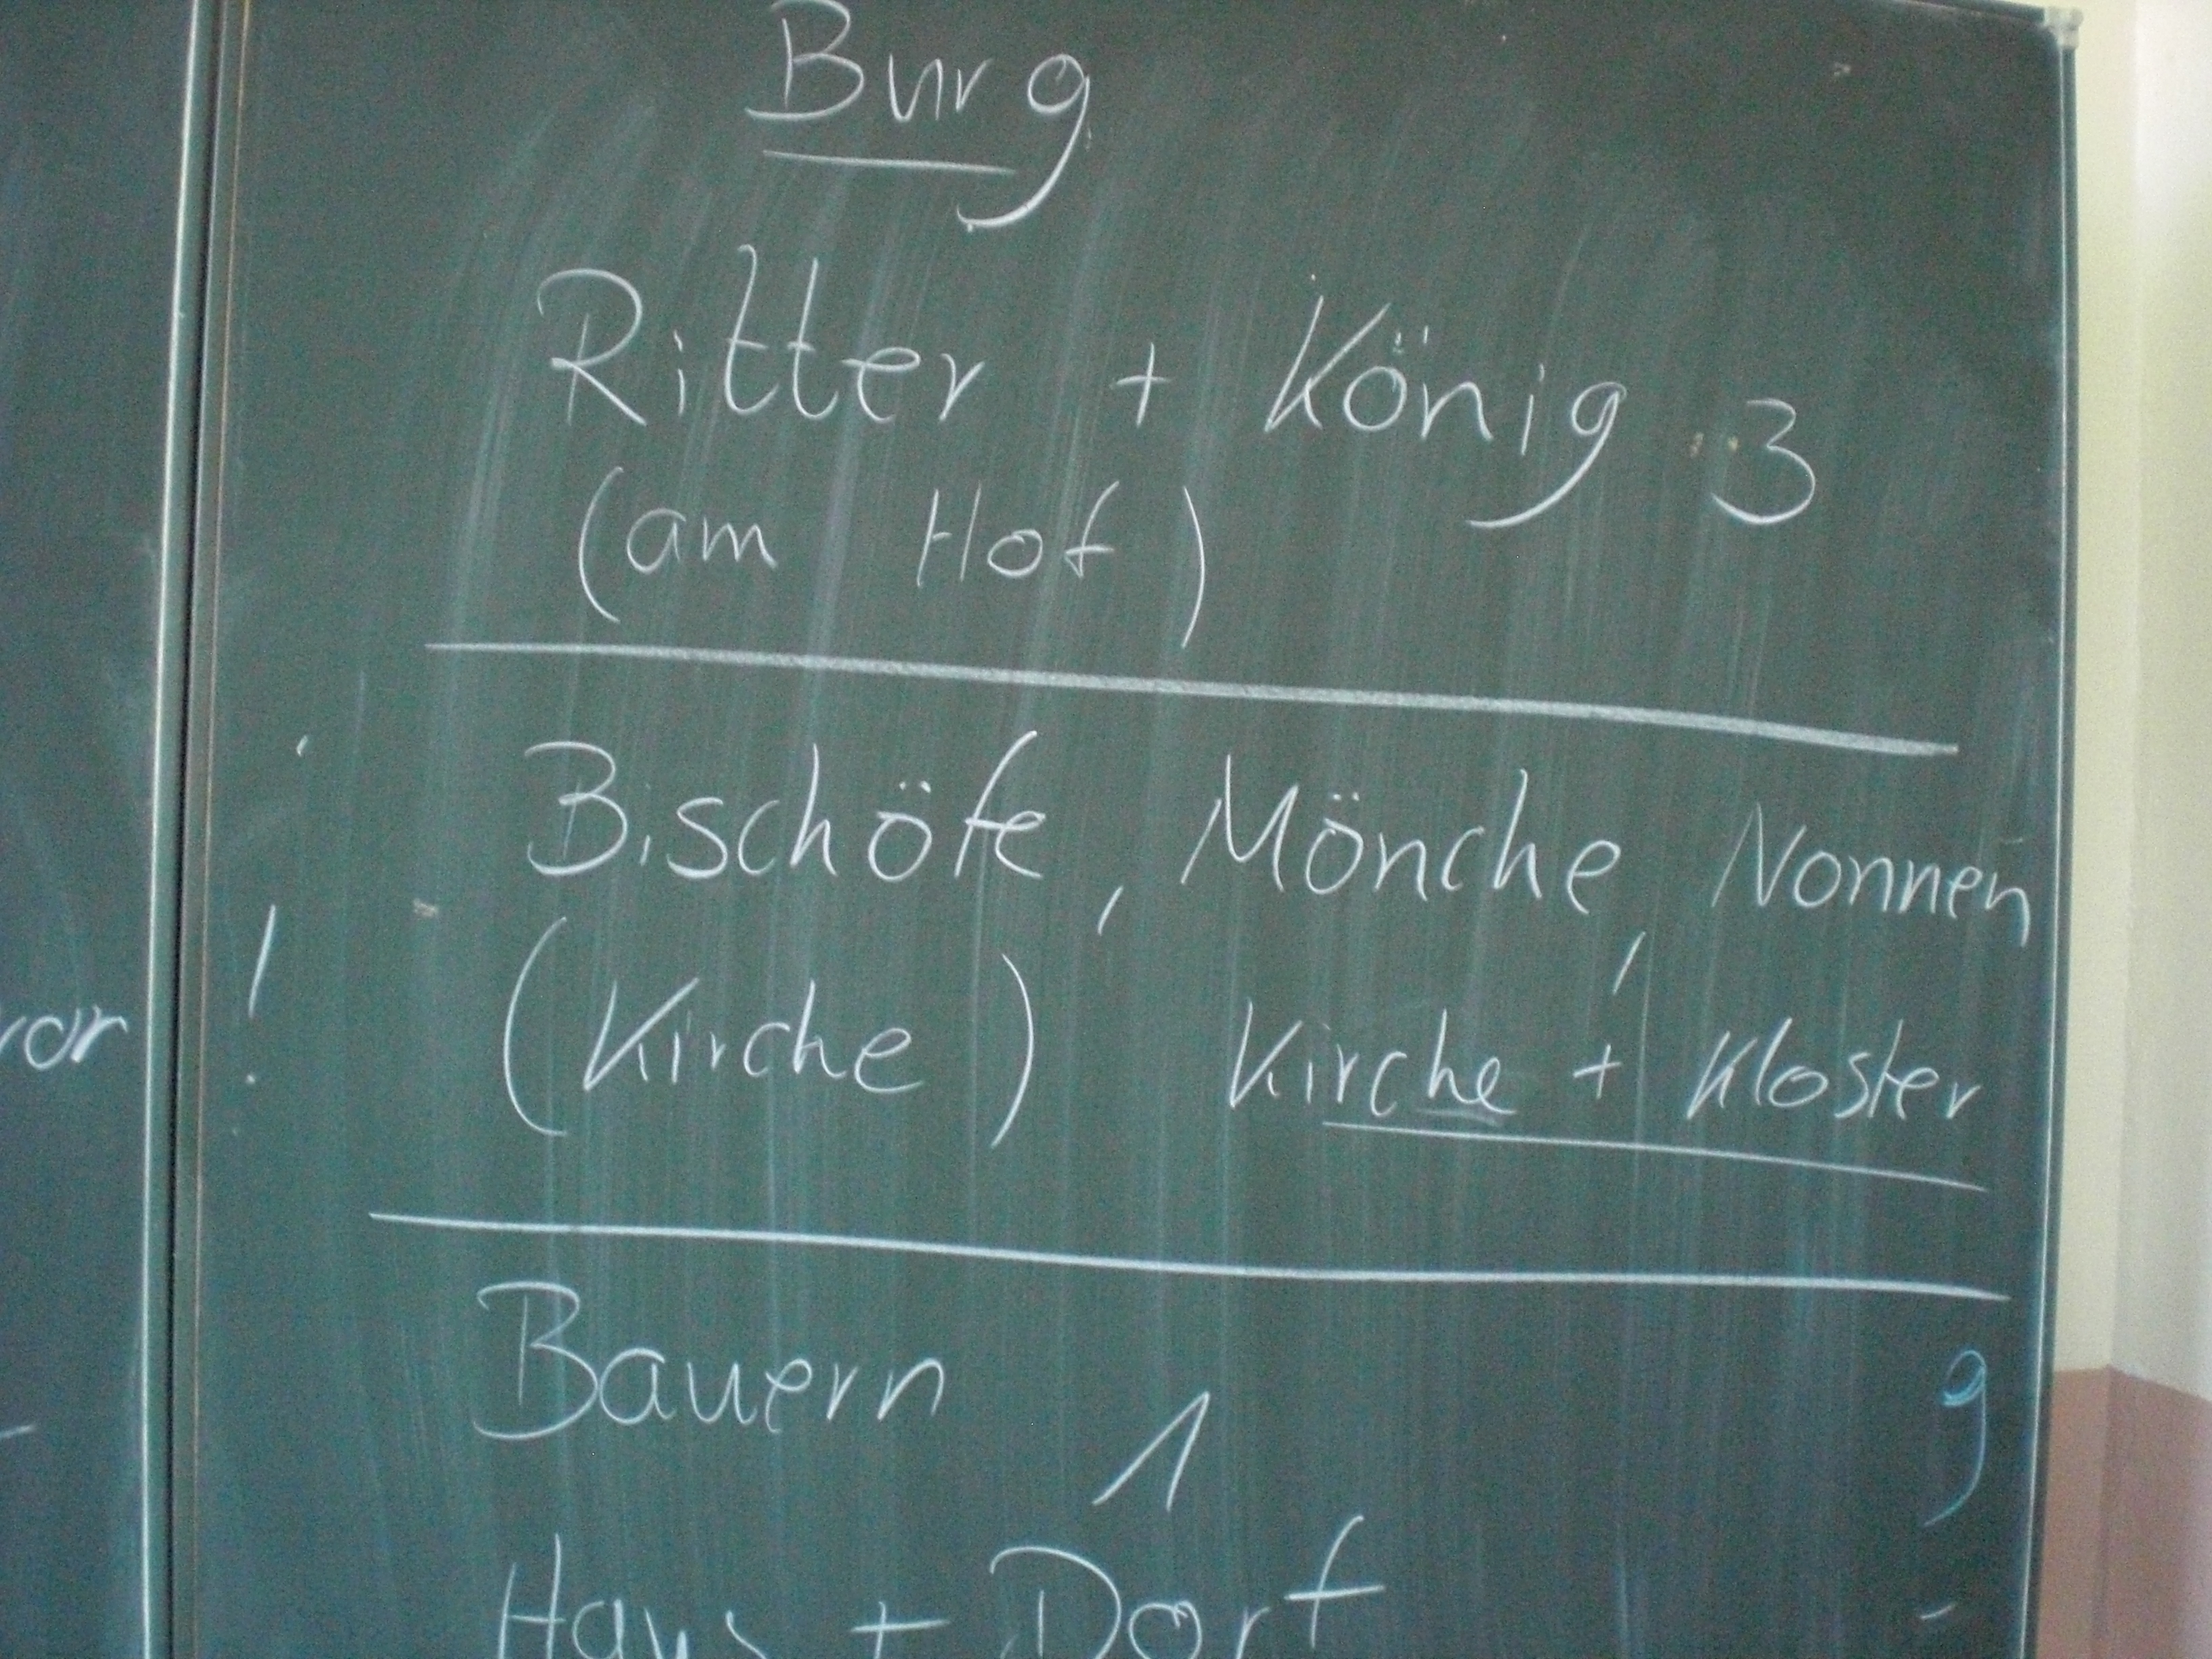 Burg
Ritter + König 3
(am Hof)
Bischöfe, Mönche, Nonnen
(Kirche) Kirche + Kloster
vor !
Bauern 1 9
Haus + Dorf